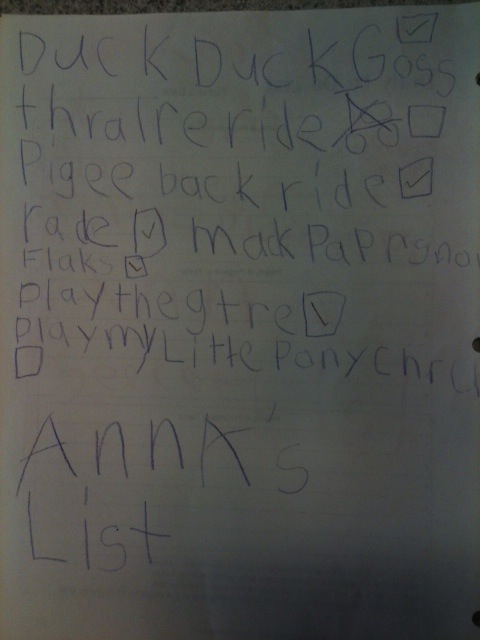 Duck Duck Goss
thralre ride
Pigee back ride
rade mack
Flaks
play the gtre
play my Little Pony
AnnA's
List